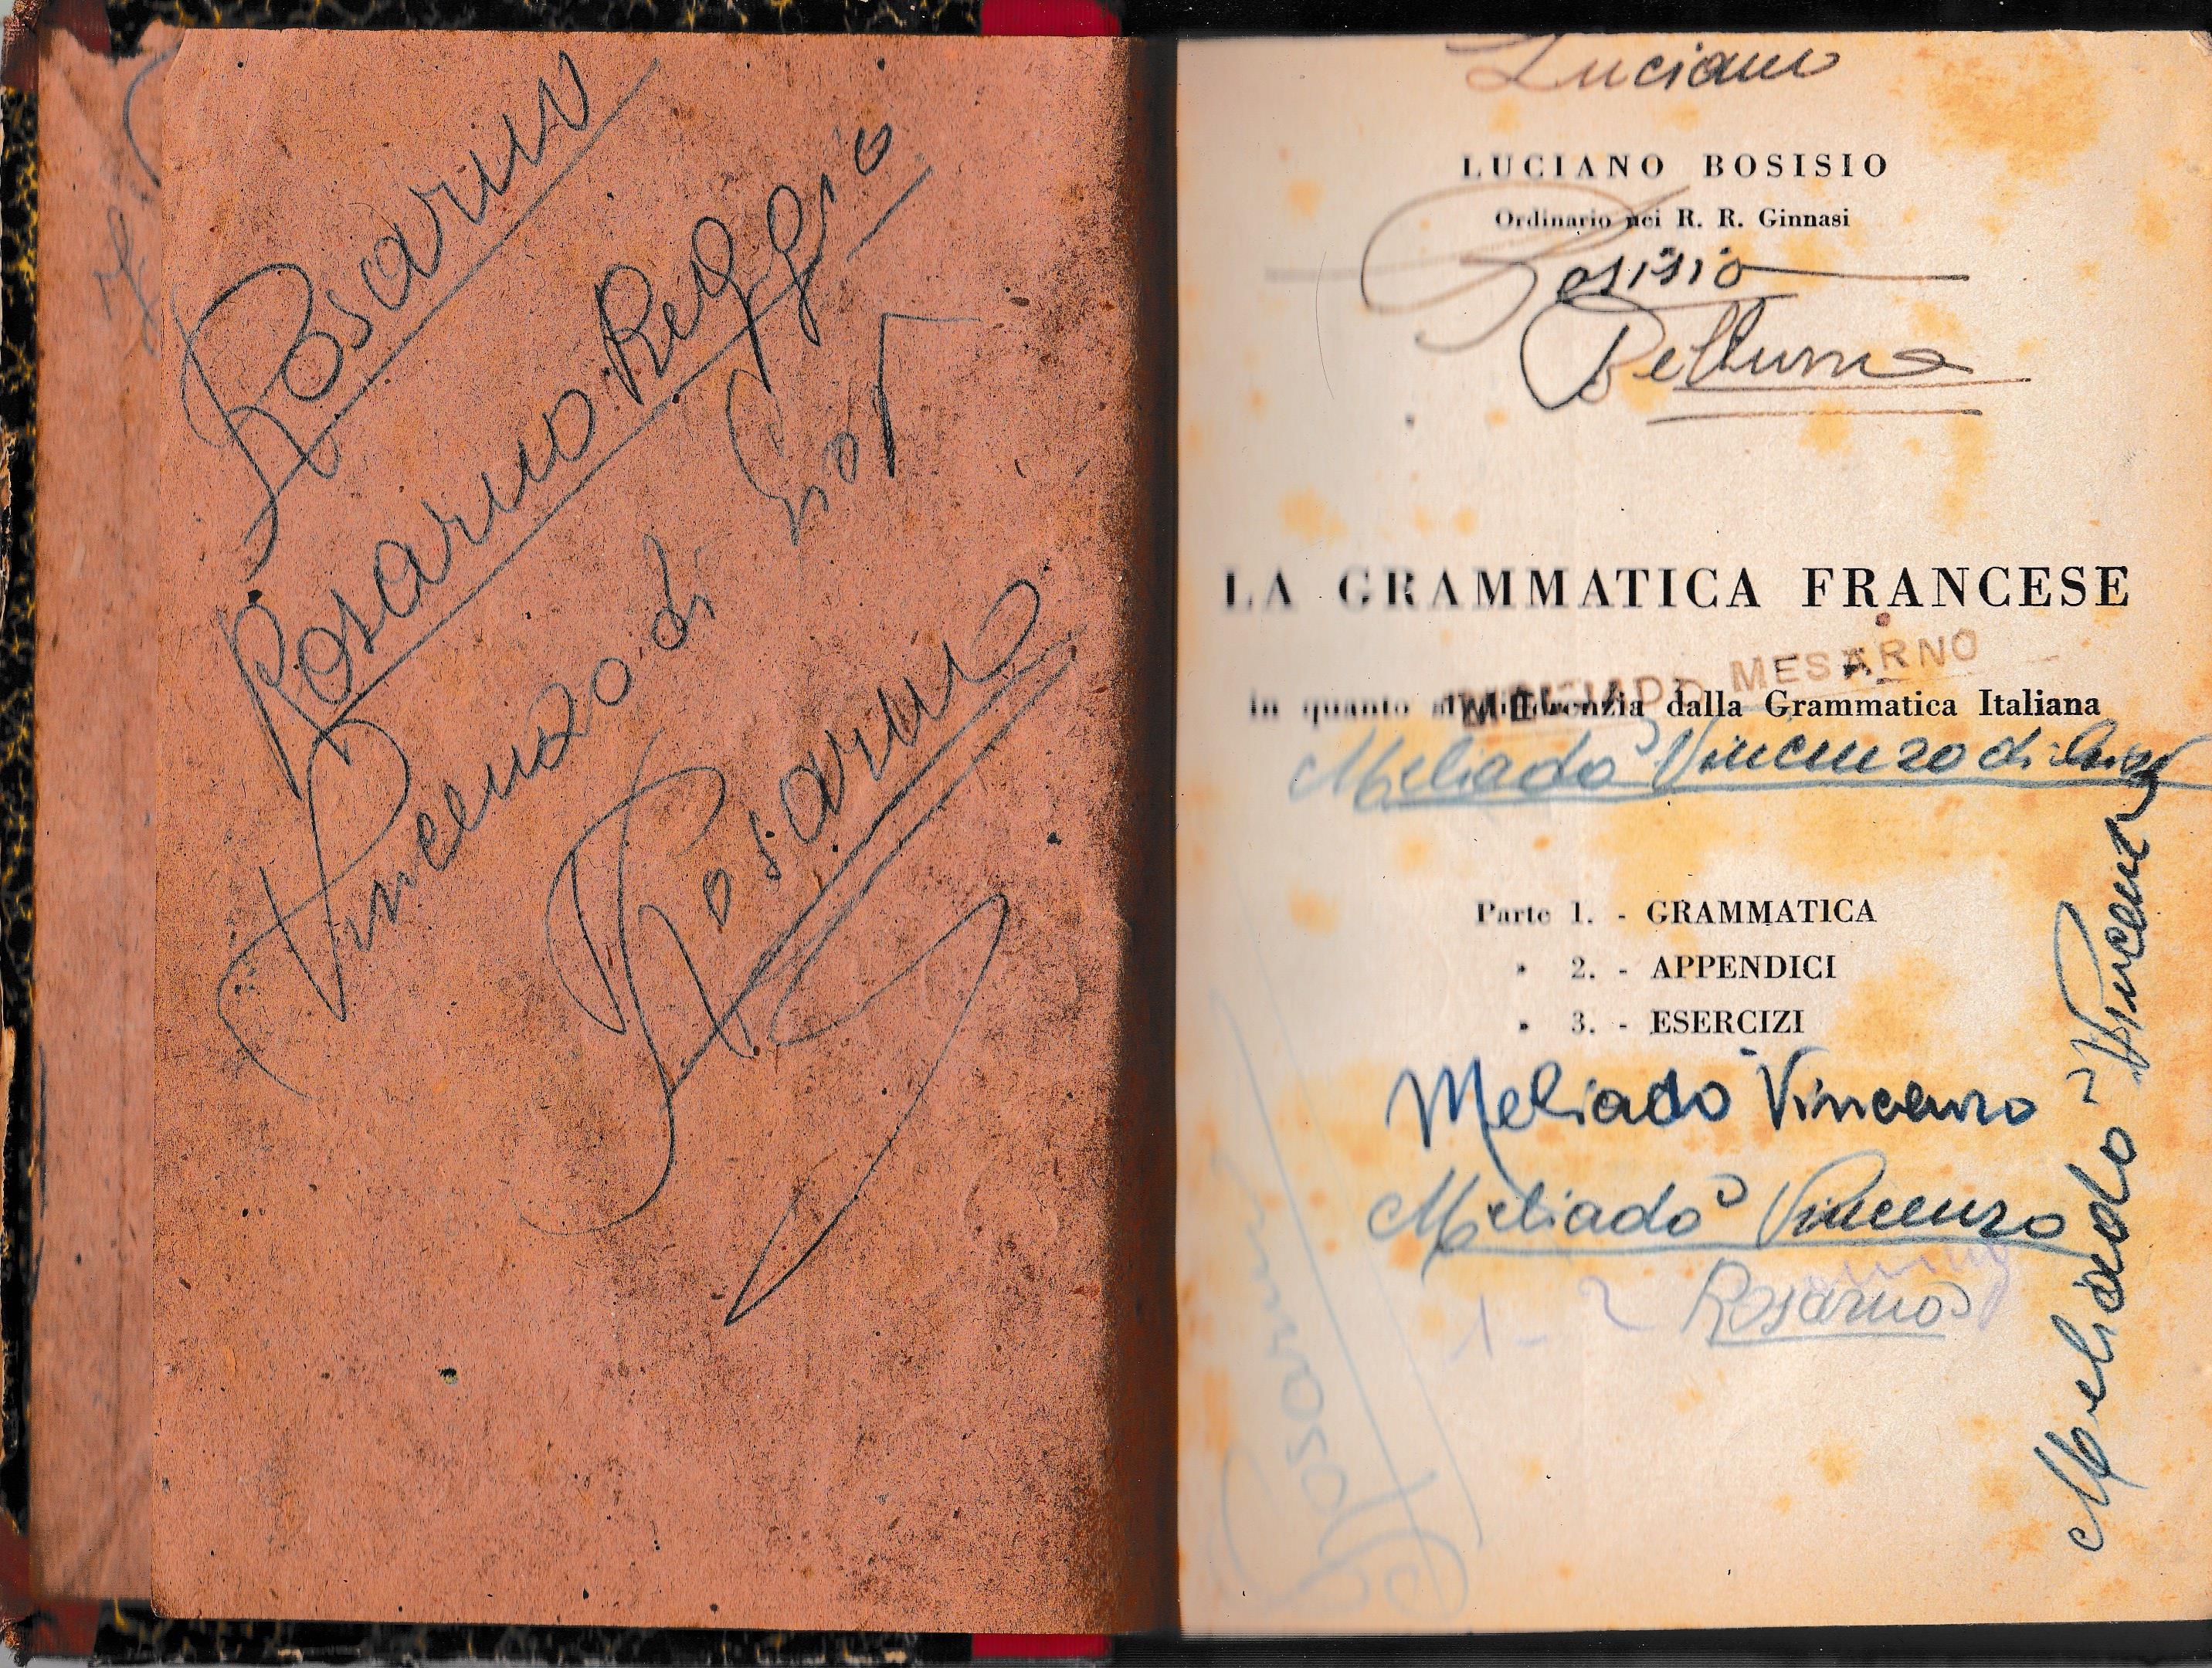 Rosarno
Rosarno Reggio
Vincenzo di Gior
Rosarno
Luciano
LUCIANO BOSISIO
Ordinario nei R. R. Ginnasi
Bosisio
Belluno
LA GRAMMATICA FRANCESE
MESARNO
in quanto dalla Grammatica Italiana
Meliadò Vincenzo di
Parte 1. - GRAMMATICA
» 2. - APPENDICI
» 3. - ESERCIZI
Meliadò Vincenzo
Meliadò Vincenzo
1 - 2 Rosarno
Meliadò Vincenzo
Rosarno